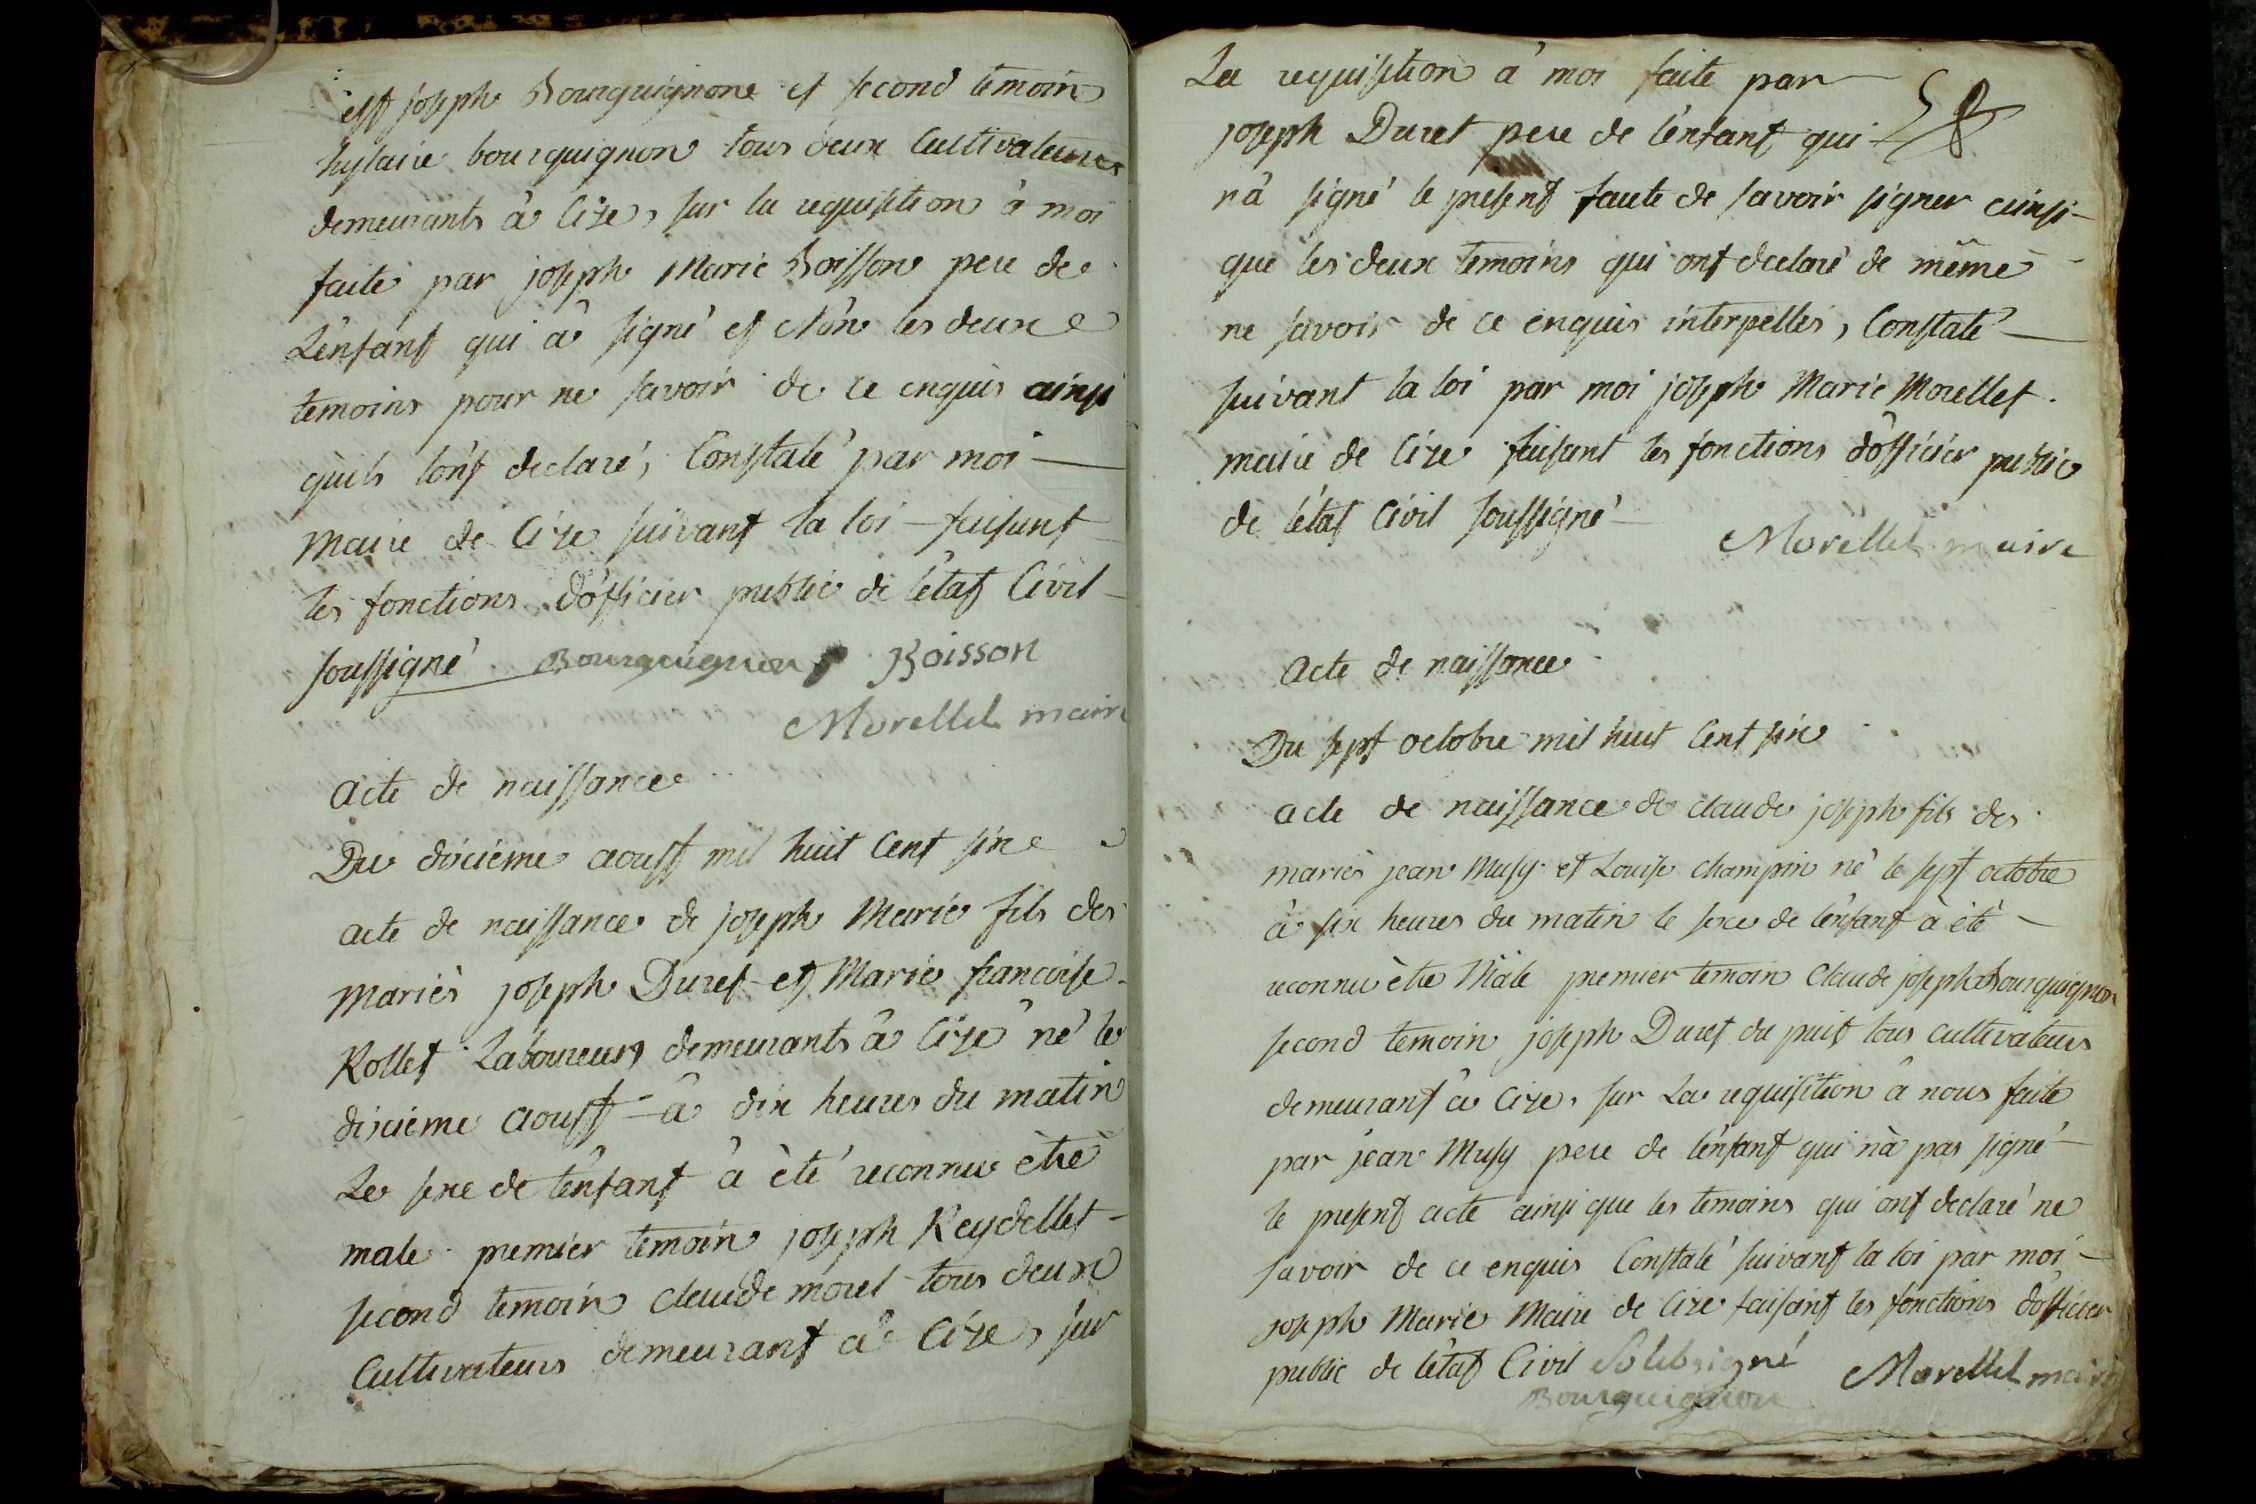 est joseph Bourguignone et second temoin
hylaire bourguignon tous deux Cultivateures
demeurants à Cize, sur la requisition à moi
faite par joseph Marie Boisson pere de
L'enfant qui à signé et Non les deux
temoins pour ne savoir de ce enquis ainsi
quils l'ont declaré, Constaté par moi
maire de Cize suivant la loi faisant
les fonctions d'officier public de l'état Civil
soussigné Bourguignon Boisson
Morellet maire
acte de naissance
Du dixieme aoust mil huit Cent six
acte de naissance de joseph Marie fils des
mariés joseph Duret et Marie francoise
Rollet Laboureurs demeurants à Cize né le
dixieme aoust à dix heures du matin
Le sexe de l'enfant à été reconnu être
male premier temoin joseph Reydellet
second temoin claude morel tous deux
Cultivateurs demeurant à Cize, sur
La requisition à moi faite par
joseph Duret pere de l'enfant qui
n'à signé le present faute de savoir signer ainsi
que les deux temoins qui ont declaré de même
ne savoir de ce enquis interpellés, Constaté
suivant la loi par moi joseph Marie Morellet
maire de Cize faisant les fonctions d'officier public
de l'état Civil soussigné
Morellet maire
acte de naissance
Du sept octobre mil huit Cent six
acte de naissance de claude joseph fils des
mariés jean Musy et Louise champin né le sept octobre
à six heures du matin le sexe de l'enfant à été
reconnu être Mâle premier temoin Claude joseph Bourguignon
second temoin joseph Duret du puit tous cultivateurs
demeurant à Cize, sur La requisition à nous faite
par jean Musy pere de l'enfant qui n'à pas signé
le present acte ainsi que les temoins qui ont declaré ne
savoir de ce enquis Constaté suivant la loi par moi
joseph Marie Maire de Cize faisant les fonctions d'officier
public de l'état Civil Morellet maire
Bourguignon